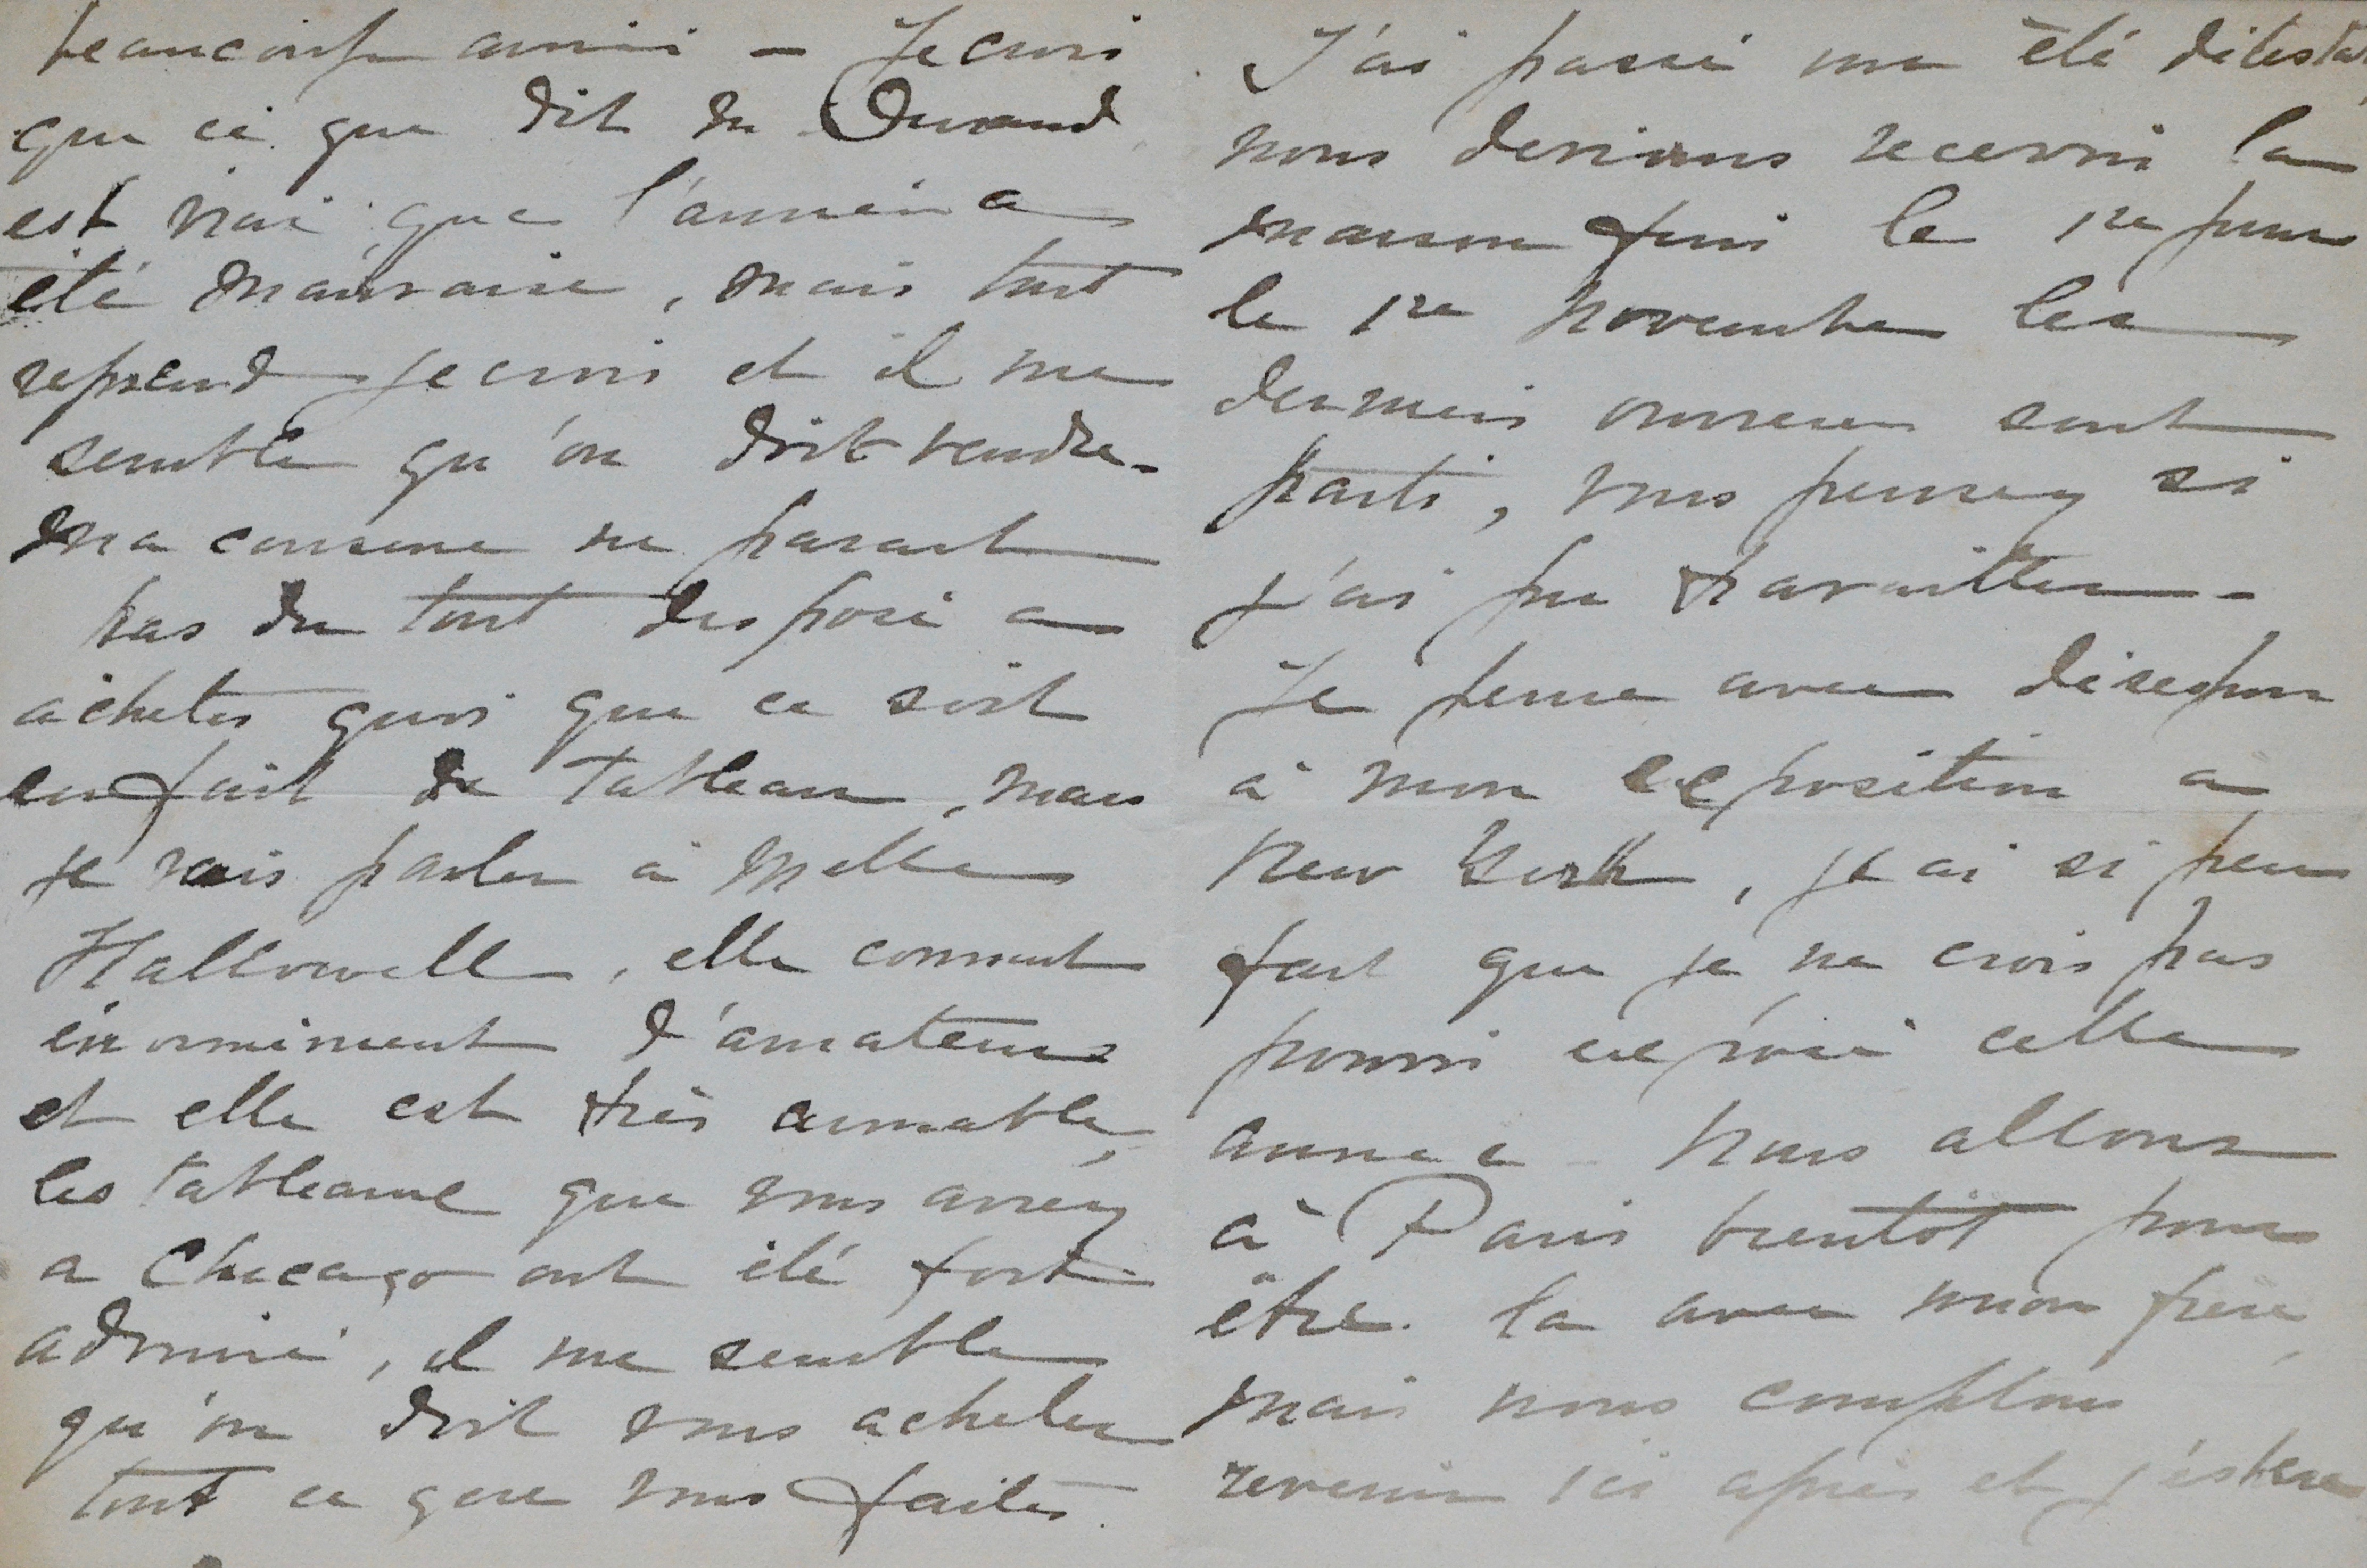 beaucoup aussi — Je crois
que ce que dit Mr Durand
est vrai que l'année a
été mauvaise, mais tout
reprend je crois et il me
semble qu'on doit vendre.
Ma cousine ne parait
pas du tout disposé a
acheter quoi que ce soit
en fait de tableau, mais
je vais parler à Melle
Hallowell, elle connait
énormiment d'amateurs
et elle est très aimable,
les tableaux que vous aviez
a Chicago ont été fort
admiré, il me semble
qu'on doit vous acheter
tout ce que vous faites.
J'ai passé un été détestab
nous devions recevoir la
maison fini le 1re juin
le 1re Novembre les
derniers ouvriers sont
parti, vous pensez si
j'ai pu travailler.
Je pense avec désespoir
à mon exposition a
New York, je ai si peu
fait que je ne crois pas
pouvoir exposé cette
année — Nous allons
à Paris bientôt pour
être la avec mon frère,
mais nous comptons
revenir ici après et j'éspere